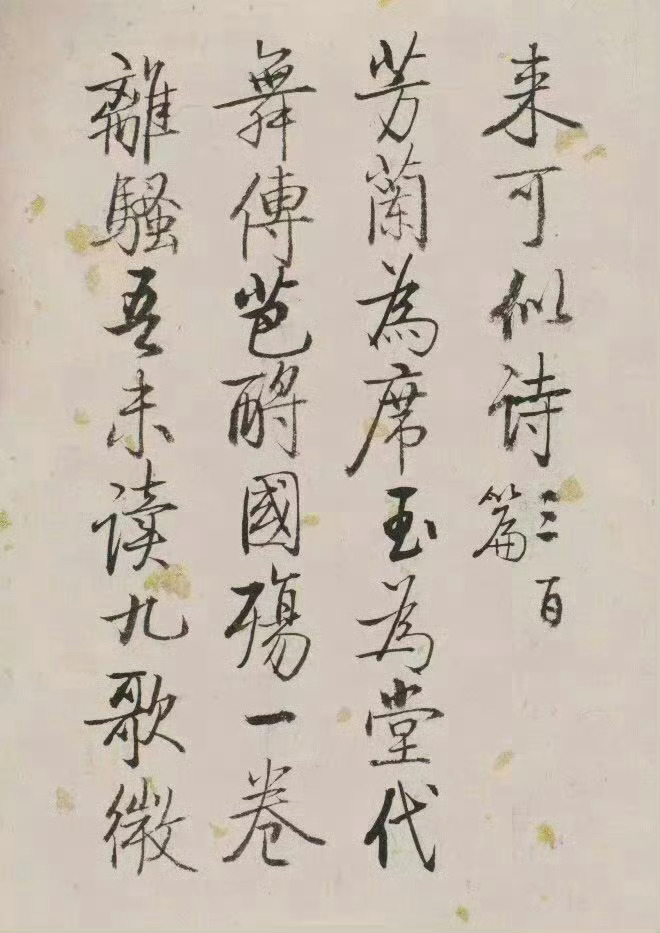 来可似诗三百篇
芳蘭為席玉為堂代
舞傳芭酹國殤一卷
離騷吾未读九歌微